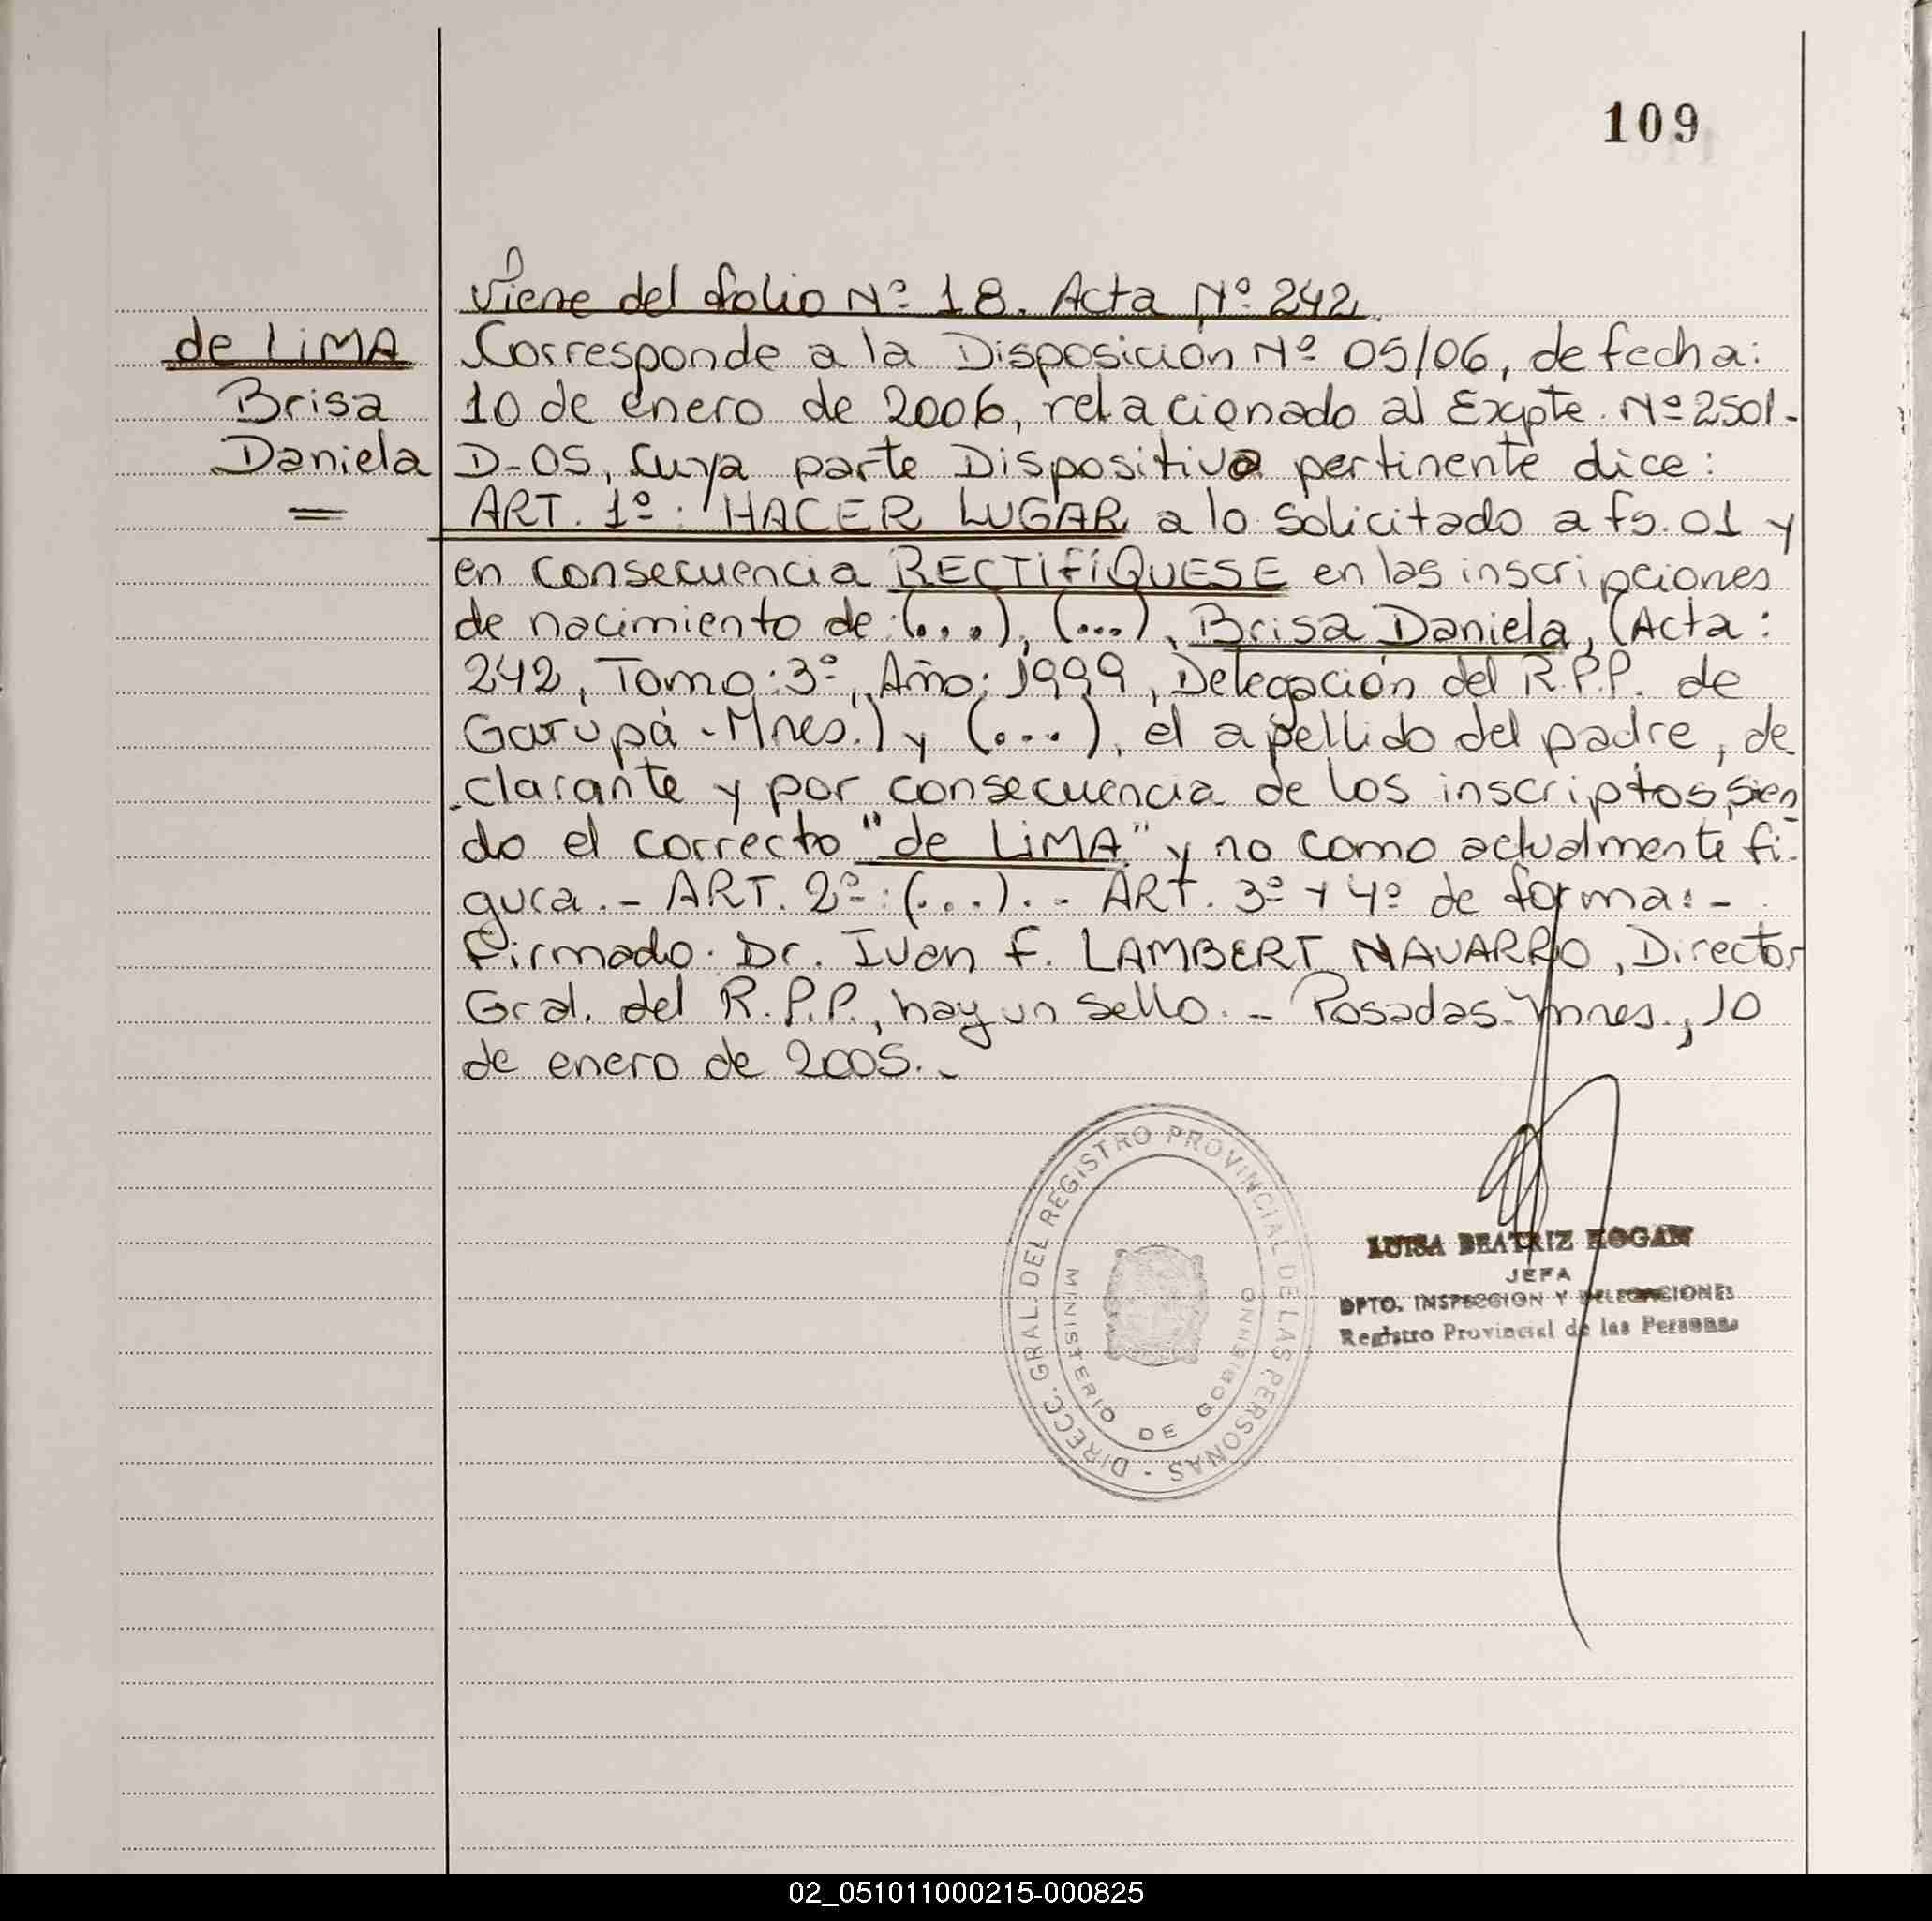 109
Viene del folio Nº 18. Acta Nº 242.
de LiMA
Brisa
Daniela
Corresponde a la Disposición Nº 05/06, de fecha:
10 de enero de 2006, relacionado al Expte. Nº 2501-
D-05, Cuya parte Dispositiva pertinente dice:
ART. 1º: HACER LUGAR a lo solicitado a fs. 01 y
en consecuencia RECTIFÍQUESE en las inscripciones
de nacimiento de: (...), (...), Brisa Daniela, (Acta:
242, Tomo: 3º, Año: 1999, Delegación del R.P.P. de
Garupá - Mnes.) y (...), el apellido del padre, de
clarante y por consecuencia de los inscriptos, sien
do el correcto "de LiMA" y no como actualmente fi-
gura. - ART. 2º: (...). - ART. 3º y 4º de forma: -
Firmado: Dr. Ivan F. LAMBERT NAVARRO, Director
Gral. del R.P.P., hay un sello. - Posadas - Mnes., 10
de enero de 2005. -
DIRECC. GRAL. DEL REGISTRO PROVINCIAL DE LAS PERSONAS -
MINISTERIO DE GOBIERNO
LUISA BEATRIZ KOGAN
JEFA
DPTO. INSPECCION Y DELEGACIONES
Registro Provincial de las Personas
02_051011000215-000825